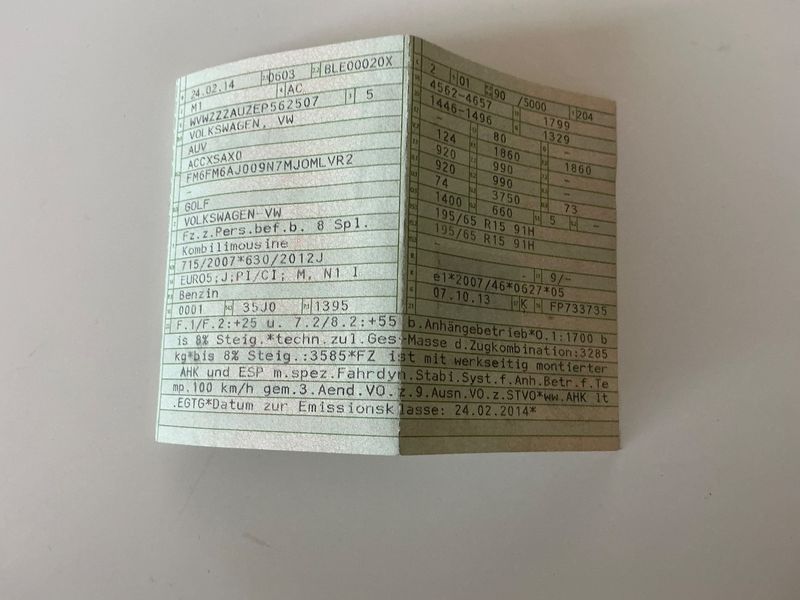 24.02.14 0603 BLE00020X
M1 AC
WVWZZZAUZEP562507 5
VOLKSWAGEN, VW
AUV
ACCXSAX0
FM6FM6AJ009N7MJOMLVR2
-
GOLF
VOLKSWAGEN VW
Fz.z.Pers.bef.b. 8 Spl.
Kombilimousine
715/2007*630/2012J
EURO5;J;PI/CI; M, N1 I
Benzin
0001 35J0 1395
2 01 90 /5000 204
4562-4657 1799
1446-1496 1329
- 80 -
124 1860 1860
920 990 -
920 990 -
74 3750 73
1400 660 5 -
195/65 R15 91H
195/65 R15 91H
-
- 9/-
e1*2007/46*0627*05
07.10.13 K FP733735
F.1/F.2:+25 u. 7.2/8.2:+55 b.Anhängebetrieb*O.1:1700 b
is 8% Steig.*techn.zul.Ges-Masse d.Zugkombination:3285
kg*bis 8% Steig.:3585*FZ ist mit werkseitig montierter
AHK und ESP m.spez.Fahrdyn.Stabi.Syst.f.Anh.Betr.f.Te
mp.100 km/h gem.3.Aend.VO.z.9.Ausn.VO.z.STVO*ww.AHK lt
.EGTG*Datum zur Emissionsklasse: 24.02.2014*